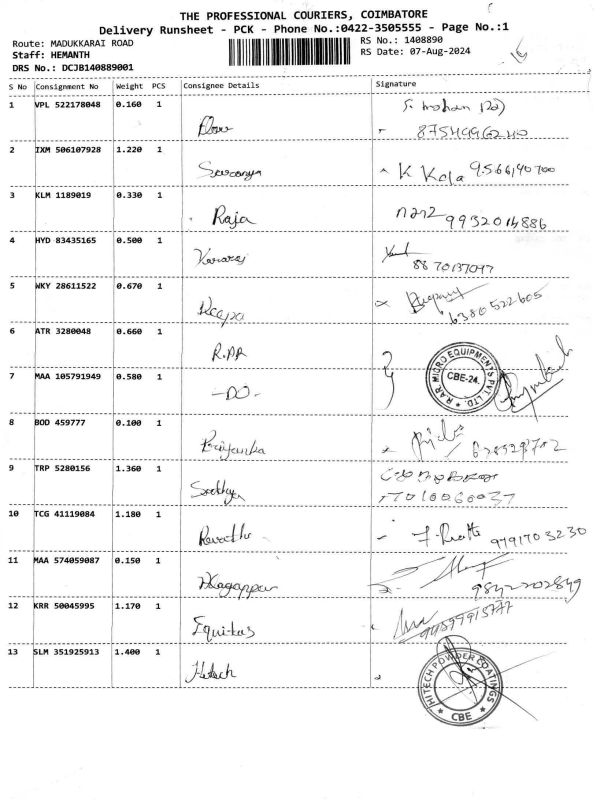 THE PROFESSIONAL COURIERS, COIMBATORE
Delivery Runsheet - PCK - Phone No.:0422-3505555 - Page No.:1
Route: MADUKKARAI ROAD
RS No.: 1408890
Staff: HEMANTH
RS Date: 07-Aug-2024
DRS No.: DCJB140889001
S No Consignment No Weight PCS Consignee Details Signature
1 VPL 522178048 0.160 1
2 IXM 506107928 1.220 1 Saranya K Kala 9566140700
3 KLM 1189019 0.330 1 Raja 9932014886
4 HYD 83435165 0.500 1 8870137047
5 WKY 28611522 0.670 1 Deepa 6380522605
6 ATR 3280048 0.660 1 R.PR
R.A.R. MICRO EQUIPMENTS PVT. LTD. CBE-24.
7 MAA 105791949 0.580 1 -DO-
8 BOD 459777 0.100 1 Priyanka
9 TRP 5280156 1.360 1 Sathya
10 TCG 41119084 1.180 1 Revathi 9791703230
11 MAA 574059087 0.150 1 Alagappan 9842202849
12 KRR 50045995 1.170 1 Equitas
13 SLM 351925913 1.400 1 Hitech
HITECH POWDER COATINGS CBE